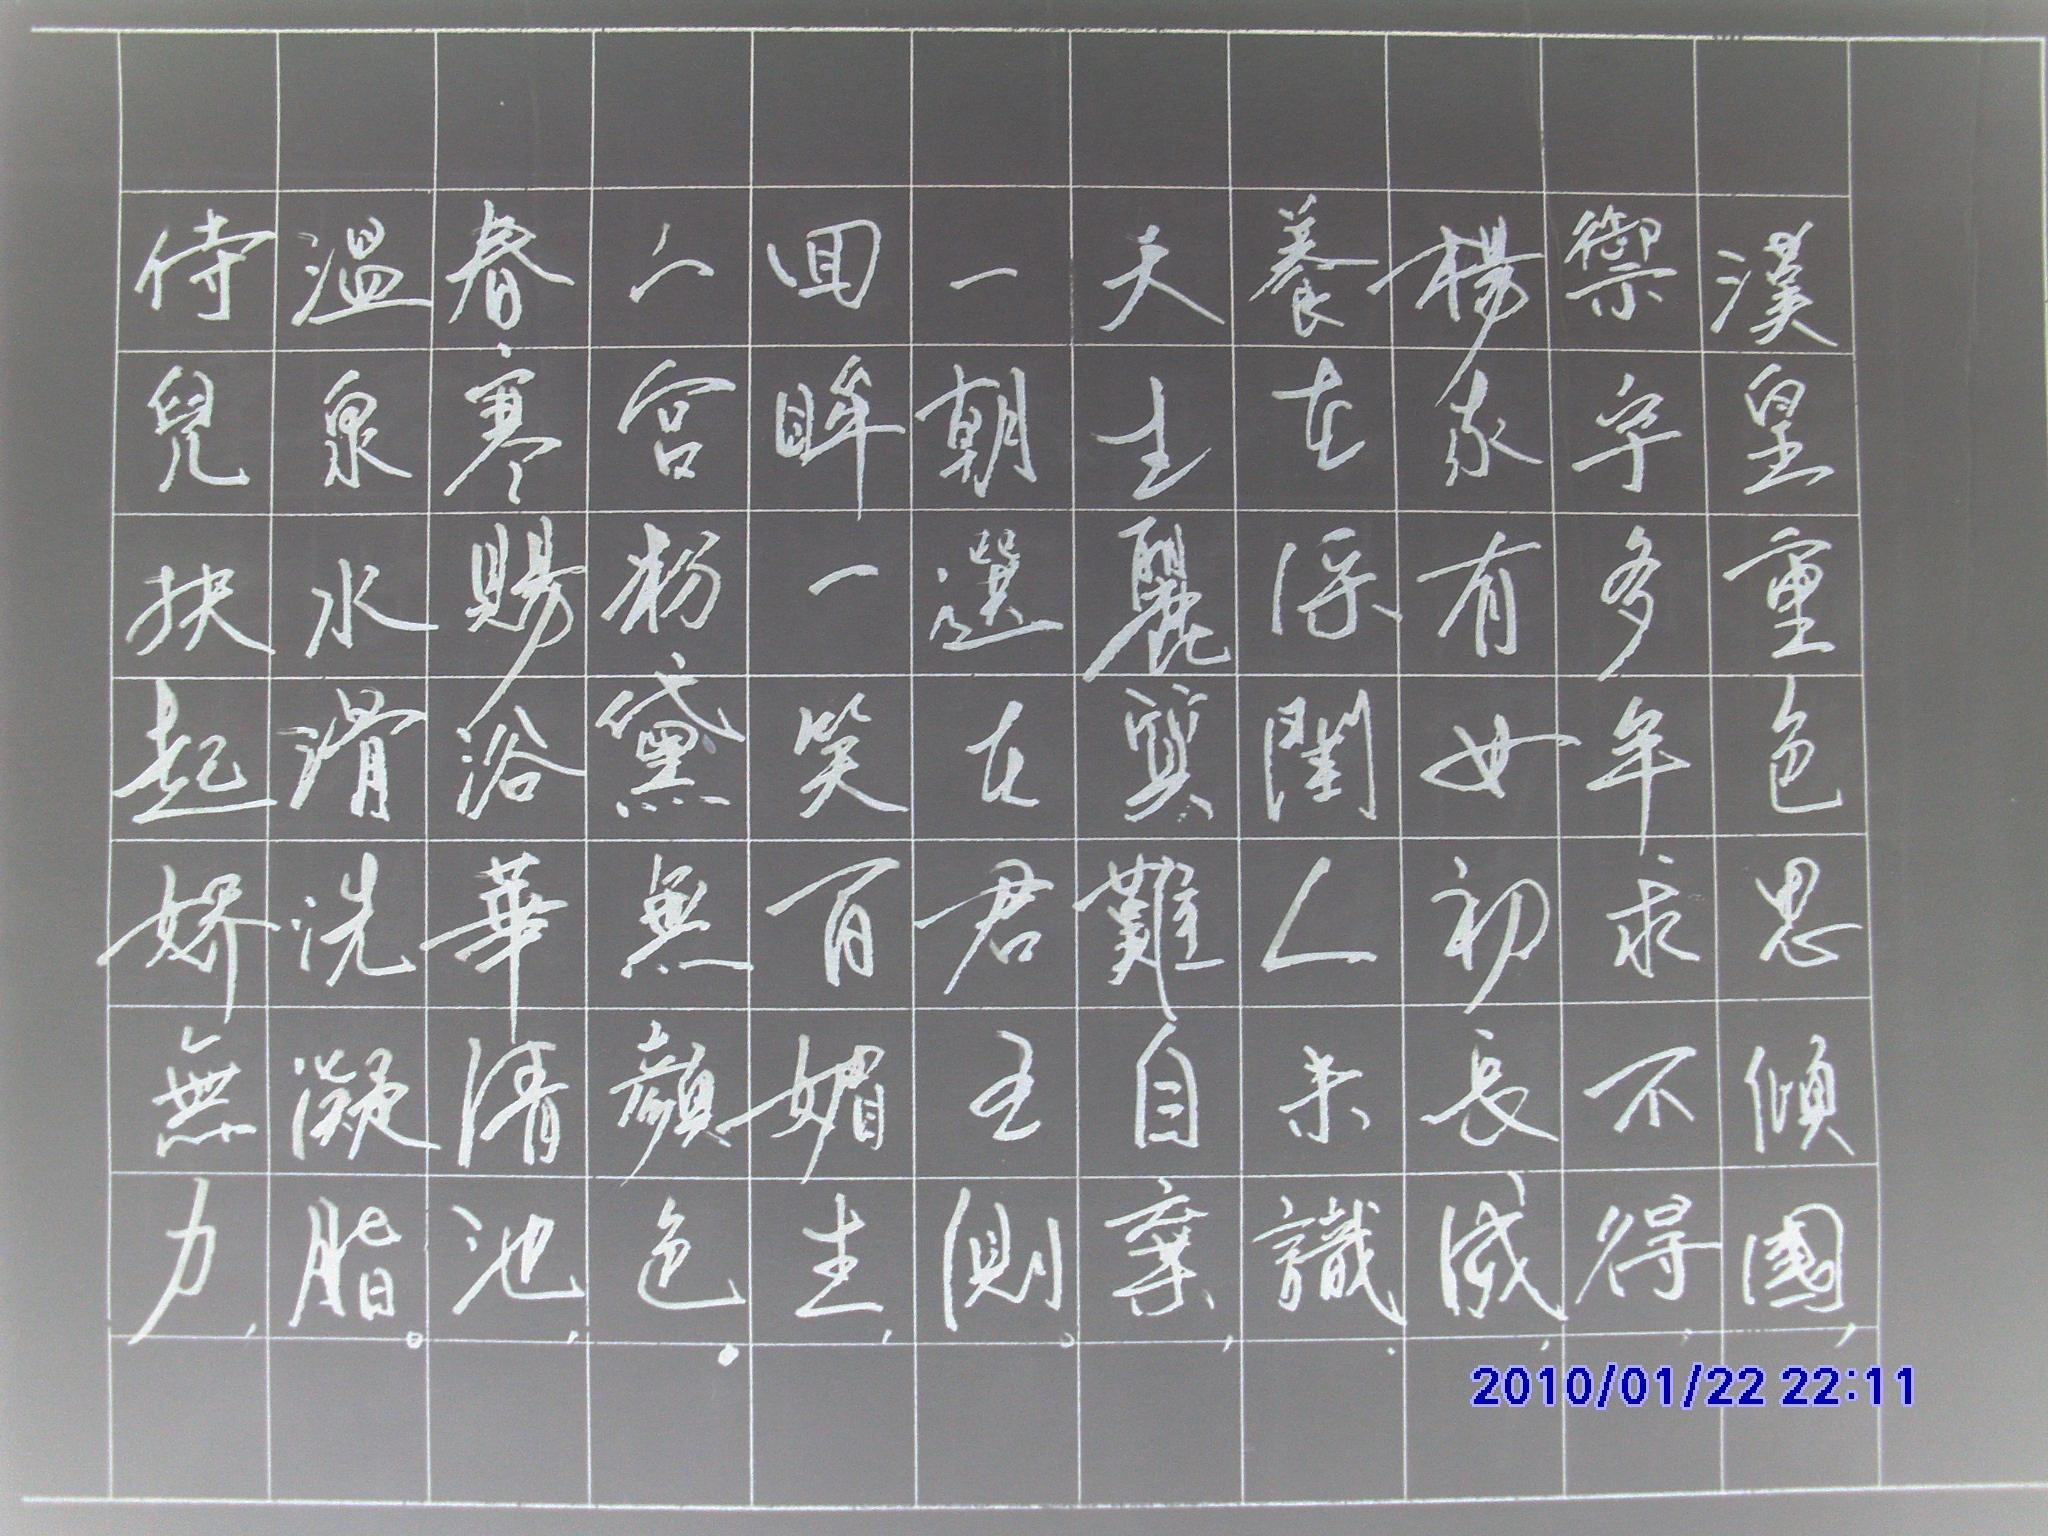 漢皇重色思傾國，
禦宇多年求不得，
楊家有女初長成，
養在深閨人未識。
天生麗質難自棄，
一朝選在君王側。
回眸一笑百媚生，
六宮粉黛無顏色。
春寒賜浴華清池，
溫泉水滑洗凝脂。
侍兒扶起嬌無力，
2010/01/22 22:11